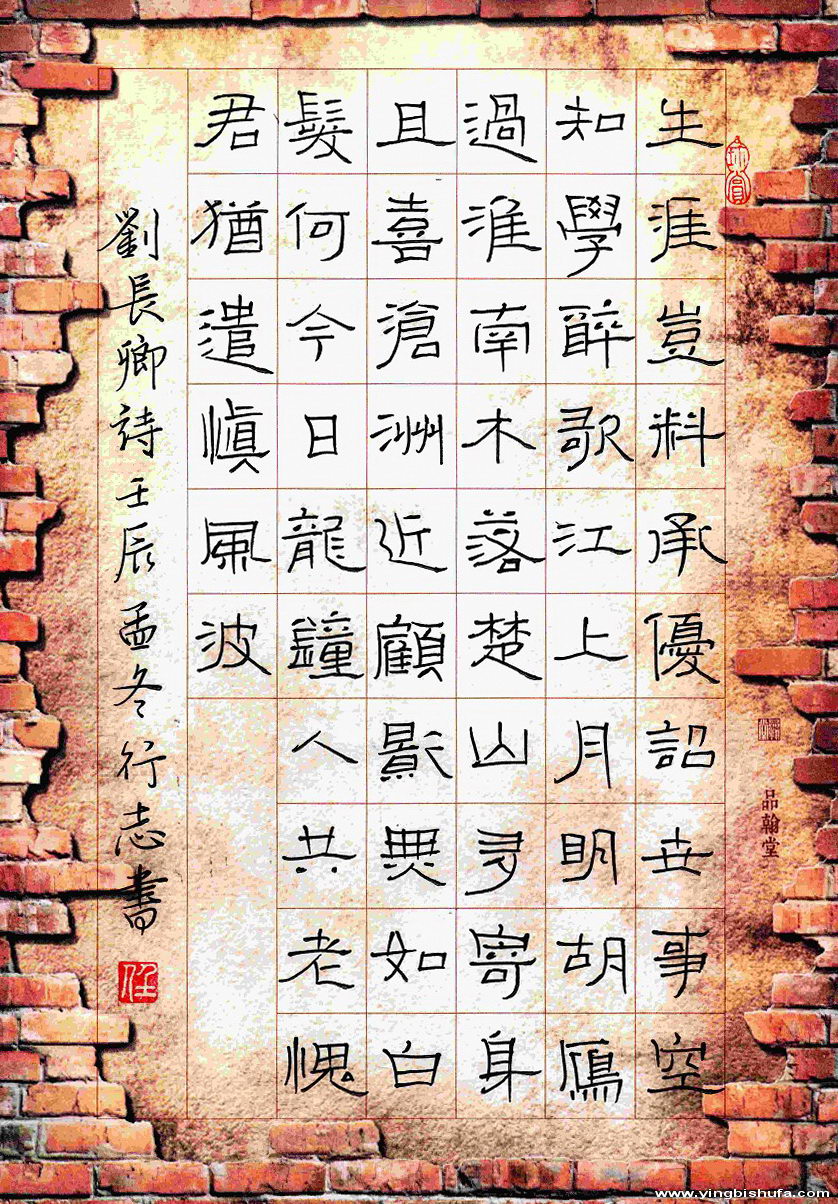 生涯豈料承優詔世事空
知學醉歌江上月明胡鴈
過淮南木落楚山多寄身
且喜滄洲近顧影無如白
髮何今日龍鐘人共老愧
君猶遣慎風波
劉長卿詩壬辰孟冬行志書
任
品翰堂
www.yingbishufa.com